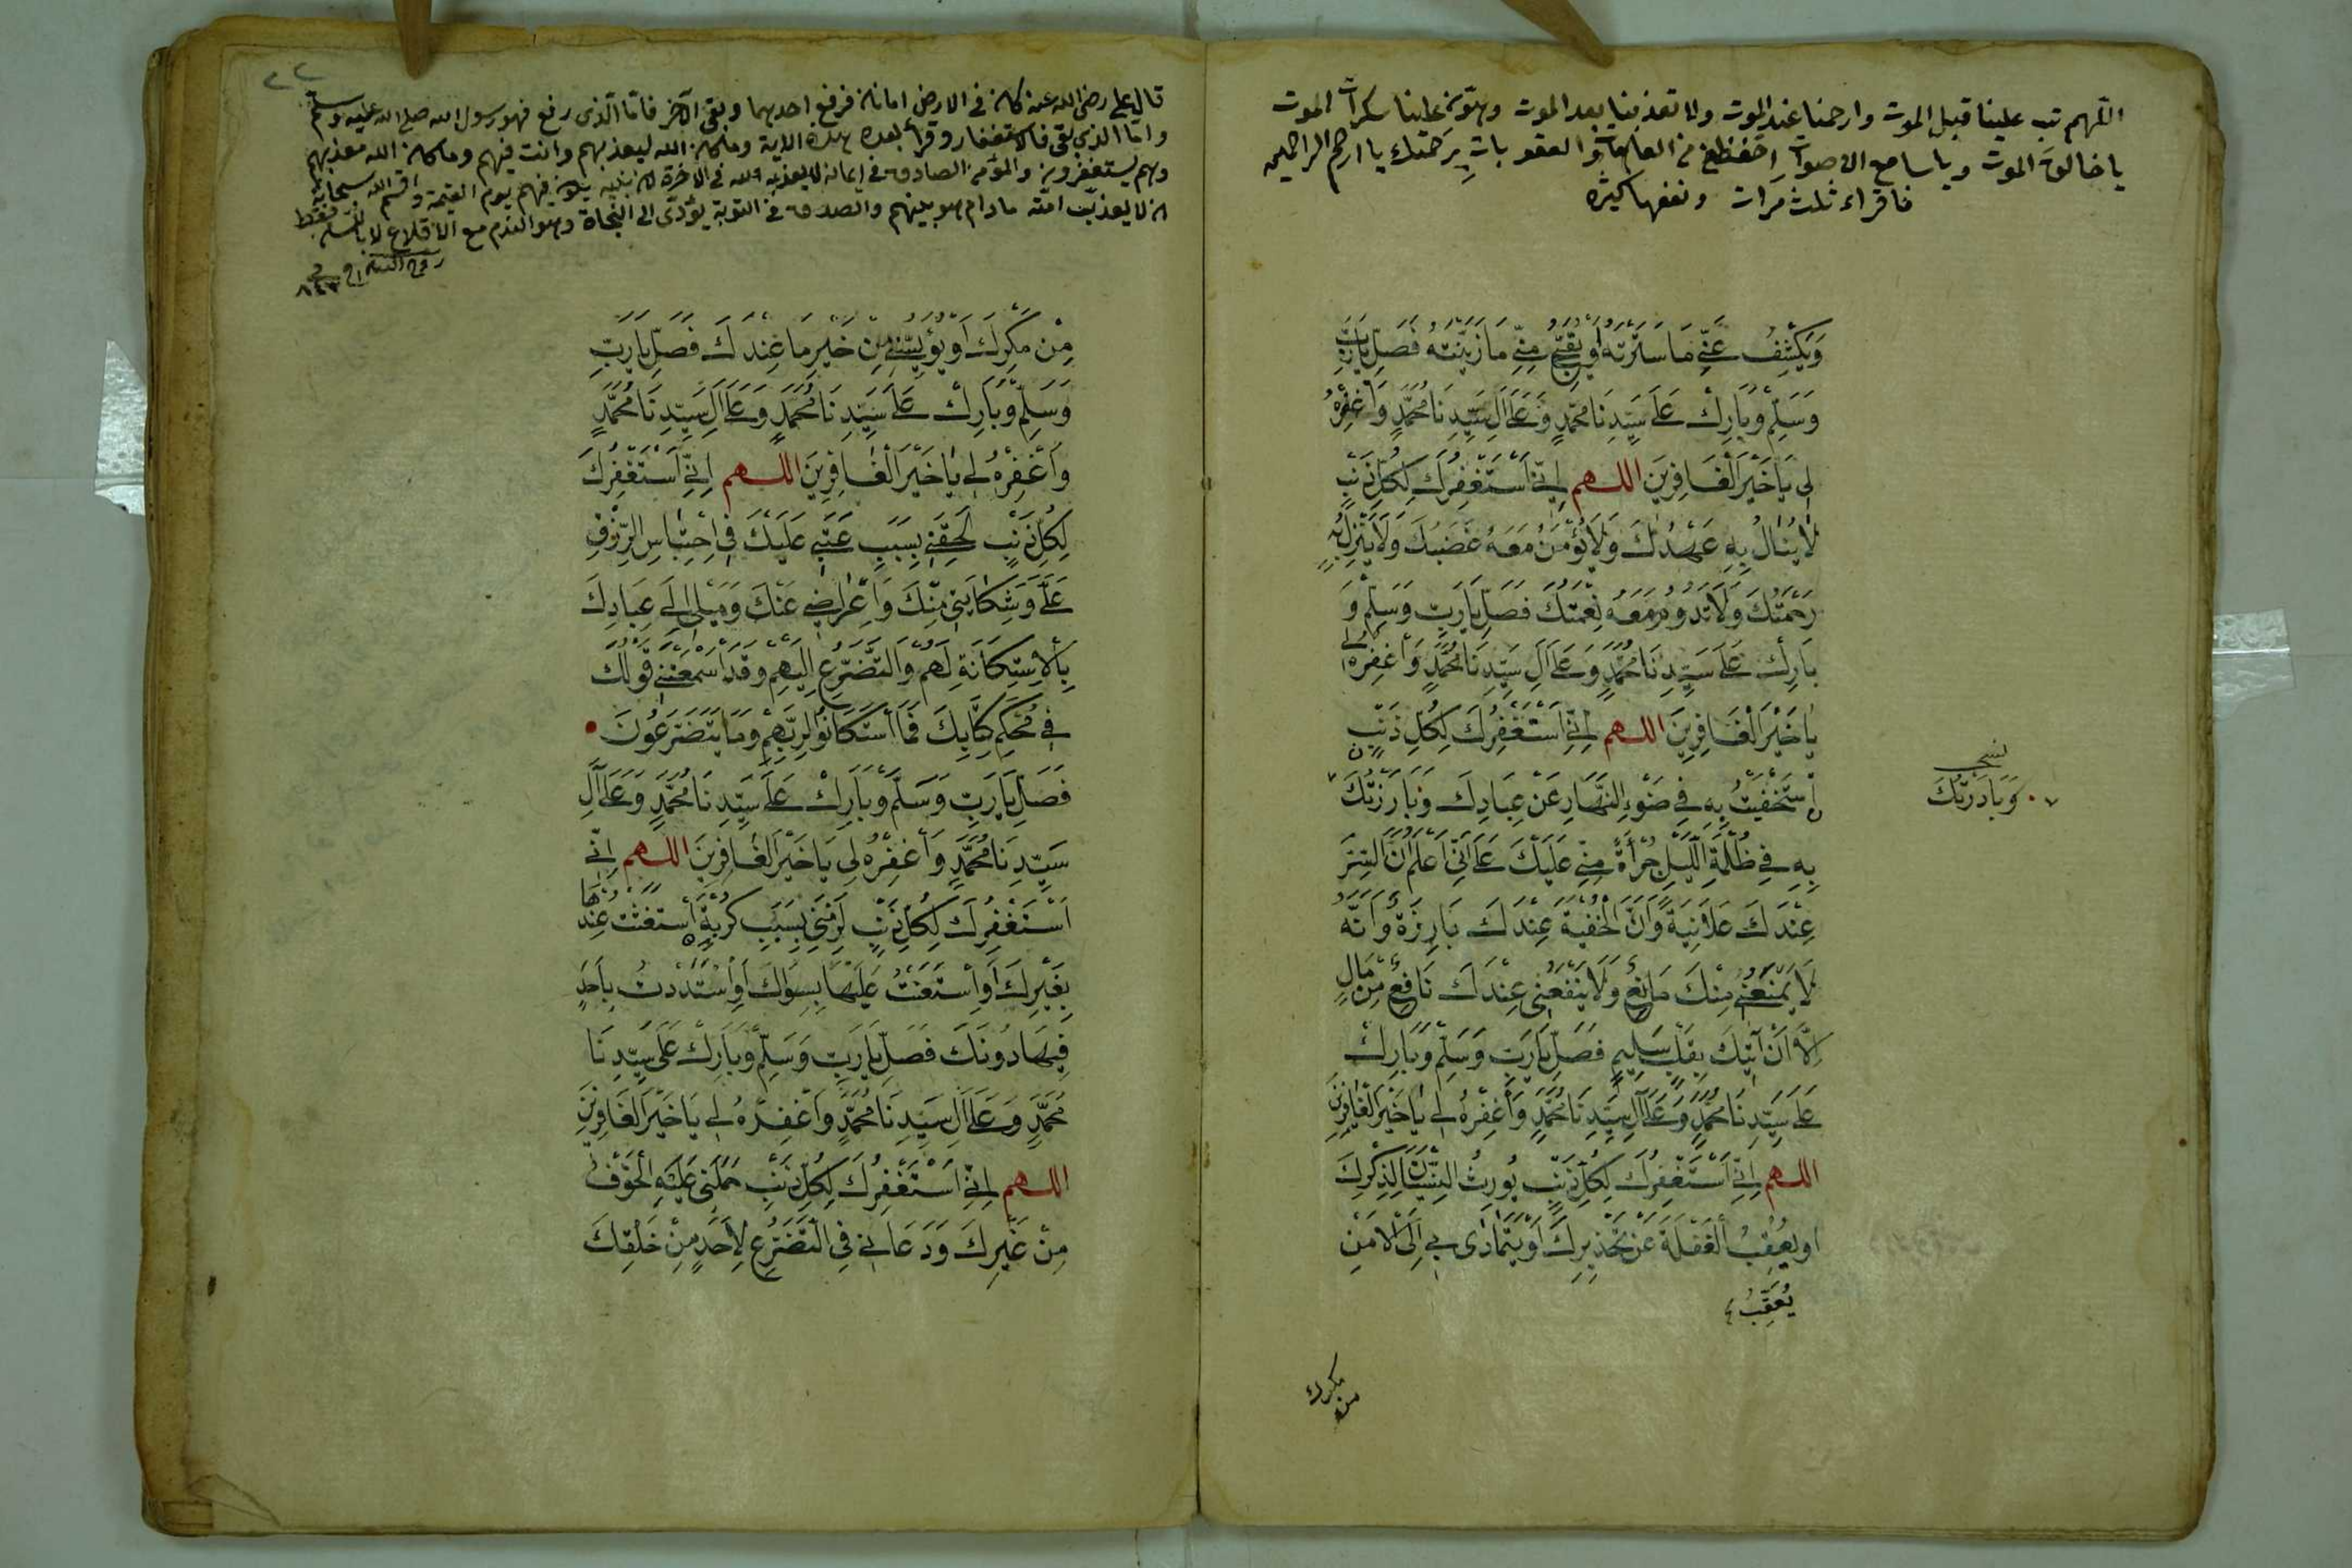 اللهم تب علينا قبل الموت وارحمنا عند الموت ولا تعذبنا بعد الموت وهون علينا سكرات الموت
يا خالق الموت ويا سامع الاصوات احفظنى من العاهات والعقوبات برحمتك يا ارحم الراحمين
فاقراء ثلث مرات ونفعها كثيرة
وَيَكْشِفُ عَنِّي مَا سَتَرْتَهُ أَوْ يُقَبِّحُ مِنِّي مَا زَيَّنْتَهُ فَصَلِّ يَا رَبِّ
وَسَلِّمْ وَبَارِكْ عَلَى سَيِّدِنَا مُحَمَّدٍ وَعَلَى آلِ سَيِّدِنَا مُحَمَّدٍ وَاغْفِرْهُ
لِي يَا خَيْرَ الْغَافِرِينَ اللهم إِنِّي أَسْتَغْفِرُكَ لِكُلِّ ذَنْبٍ
لَا يُنَالُ بِهِ عَهْدُكَ وَلَا يُؤْمَنُ مَعَهُ غَضَبُكَ وَلَا يَنْزِلُ بِهِ
رَحْمَتُكَ وَلَا تَدُومُ مَعَهُ نِعْمَتُكَ فَصَلِّ يَا رَبِّ وَسَلِّمْ وَ
بَارِكْ عَلَى سَيِّدِنَا مُحَمَّدٍ وَعَلَى آلِ سَيِّدِنَا مُحَمَّدٍ وَاغْفِرْهُ لِي
يَا خَيْرَ الْغَافِرِينَ اللهم إِنِّي أَسْتَغْفِرُكَ لِكُلِّ ذَنْبٍ
اسْتَخْفَيْتُ بِهِ فِي ضَوْءِ النَّهَارِ عَنْ عِبَادِكَ وَبَارَزْتُكَ
وَبَادَرْتُكَ
بِهِ فِي ظُلْمَةِ اللَّيْلِ جُرْأَةً مِنِّي عَلَيْكَ عَلَى أَنِّي أَعْلَمُ أَنَّ السِّتْرَ
عِنْدَكَ عَلَانِيَةٌ وَأَنَّ الْخُفْيَةَ عِنْدَكَ بَارِزَةٌ وَأَنَّهُ
لَا يَمْنَعُنِي مِنْكَ مَانِعٌ وَلَا يَنْفَعُنِي عِنْدَكَ نَافِعٌ مِنْ مَالٍ
إِلَّا أَنْ آتِيَكَ بِقَلْبٍ سَلِيمٍ فَصَلِّ يَا رَبِّ وَسَلِّمْ وَبَارِكْ
عَلَى سَيِّدِنَا مُحَمَّدٍ وَعَلَى آلِ سَيِّدِنَا مُحَمَّدٍ وَاغْفِرْهُ لِي يَا خَيْرَ الْغَافِرِينَ
اللهم إِنِّي أَسْتَغْفِرُكَ لِكُلِّ ذَنْبٍ يُورِثُ النِّسْيَانَ لِذِكْرِكَ
أَوْ يُعْقِبُ الْغَفْلَةَ عَنْ تَحْذِيرِكَ أَوْ يَتَمَادَى بِي إِلَى الْأَمْنِ
يُعَقِّبُ
من مكرك
قال على رضى الله عنه كان فى الارض امانان فرفع احدهما وبقى الآخر فاما الذى رفع فهو رسول الله صلى الله عليه وسلم
واما الذى بقى فالاستغفار وقرأ بعده هذه الاية وما كان الله ليعذبهم وانت فيهم وما كان الله معذبهم
وهم يستغفرون والمؤمن الصادق فى ايمانه لا يعذبه الله فى الآخرة لان نبيه يكون فيهم يوم القيمة واقسم الله سبحانه
ان لا يعذب امته ما دام هو بينهم والصدق فى التوبة يؤدى الى النجاة وهو الندم مع الاقلاع لا باللسان فقط
مِنْ مَكْرِكَ أَوْ يُؤْيِسُنِي مِنْ خَيْرِ مَا عِنْدَكَ فَصَلِّ يَا رَبِّ
وَسَلِّمْ وَبَارِكْ عَلَى سَيِّدِنَا مُحَمَّدٍ وَعَلَى آلِ سَيِّدِنَا مُحَمَّدٍ
وَاغْفِرْهُ لِي يَا خَيْرَ الْغَافِرِينَ اللهم إِنِّي أَسْتَغْفِرُكَ
لِكُلِّ ذَنْبٍ لَحِقَنِي بِسَبَبِ عَتْبِي عَلَيْكَ فِي احْتِبَاسِ الرِّزْقِ
عَلَيَّ وَشِكَايَتِي مِنْكَ وَإِعْرَاضِي عَنْكَ وَمَيْلِي إِلَى عِبَادِكَ
بِالْاسْتِكَانَةِ لَهُمْ وَالتَّضَرُّعِ إِلَيْهِمْ وَقَدْ أَسْمَعْتَنِي قَوْلَكَ
فِي مُحْكَمِ كِتَابِكَ فَمَا اسْتَكَانُوا لِرَبِّهِمْ وَمَا يَتَضَرَّعُونَ
فَصَلِّ يَا رَبِّ وَسَلِّمْ وَبَارِكْ عَلَى سَيِّدِنَا مُحَمَّدٍ وَعَلَى آلِ
سَيِّدِنَا مُحَمَّدٍ وَاغْفِرْهُ لِي يَا خَيْرَ الْغَافِرِينَ اللهم إِنِّي
أَسْتَغْفِرُكَ لِكُلِّ ذَنْبٍ لَزِمَنِي بِسَبَبِ كُرْبَةٍ اسْتَغَثْتُ عِنْدَهَا
بِغَيْرِكَ أَوِ اسْتَعَنْتُ عَلَيْهَا بِسِوَاكَ أَوِ اسْتَمْدَدْتُ بِأَحَدٍ
فِيهَا دُونَكَ فَصَلِّ يَا رَبِّ وَسَلِّمْ وَبَارِكْ عَلَى سَيِّدِنَا
مُحَمَّدٍ وَعَلَى آلِ سَيِّدِنَا مُحَمَّدٍ وَاغْفِرْهُ لِي يَا خَيْرَ الْغَافِرِينَ
اللهم إِنِّي أَسْتَغْفِرُكَ لِكُلِّ ذَنْبٍ حَمَلَنِي عَلَيْهِ الْخَوْفُ
مِنْ غَيْرِكَ وَدَعَانِي فِي التَّضَرُّعِ لِأَحَدٍ مِنْ خَلْقِكَ